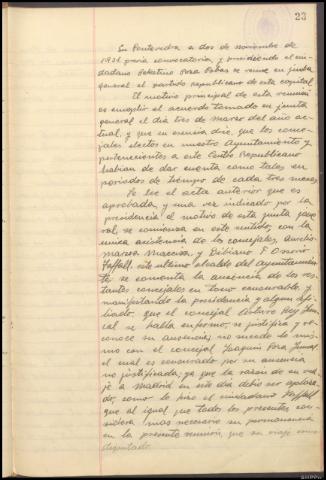 23
En Pontevedra a dos de noviembre de
1931 previa convocatoria, y presidiendo el ciu-
dadano Celestino Poza Pastor se reune en junta
general el partido republicano de esta capital
El motivo principal de esta reunión
es cumplir el acuerdo tomado en junta
general el día tres de marzo del año ac-
tual, y que en esencia dice, que los conce-
jales electos en nuestro Ayuntamiento y
pertenecientes a este Centro Republicano
habian de dar cuenta como tales en
periodos de tiempo de cada tres meses.
Se lee el acta anterior que es
aprobada, y una vez indicado por la
presidencia el motivo de esta junta gene-
ral, se comienza en este sentido, con la
unica asistencia de los concejales,
y Bibiano F Osorio
Taffall, este ultimo alcalde del ayuntamien-
to se comenta la ausencia de los res-
tantes concejales en tono censurable, y
manifestando la presidencia y algun afi-
liado, que el concejal Arturo Rey
se halla enfermo, se justifica y re-
conoce su ausencia; no sucede lo mis-
mo con el concejal Joaquin Poza
el cual es censurado por su ausencia
no justificada; ya que la razón de su via-
je a Madrid en este día debio ser aplaza-
do, como lo hizo el ciudadano Taffall
que al igual que todos los presentes con-
sidera mas necesario su permanencia
en la presente reunión, que su viaje como
diputado.